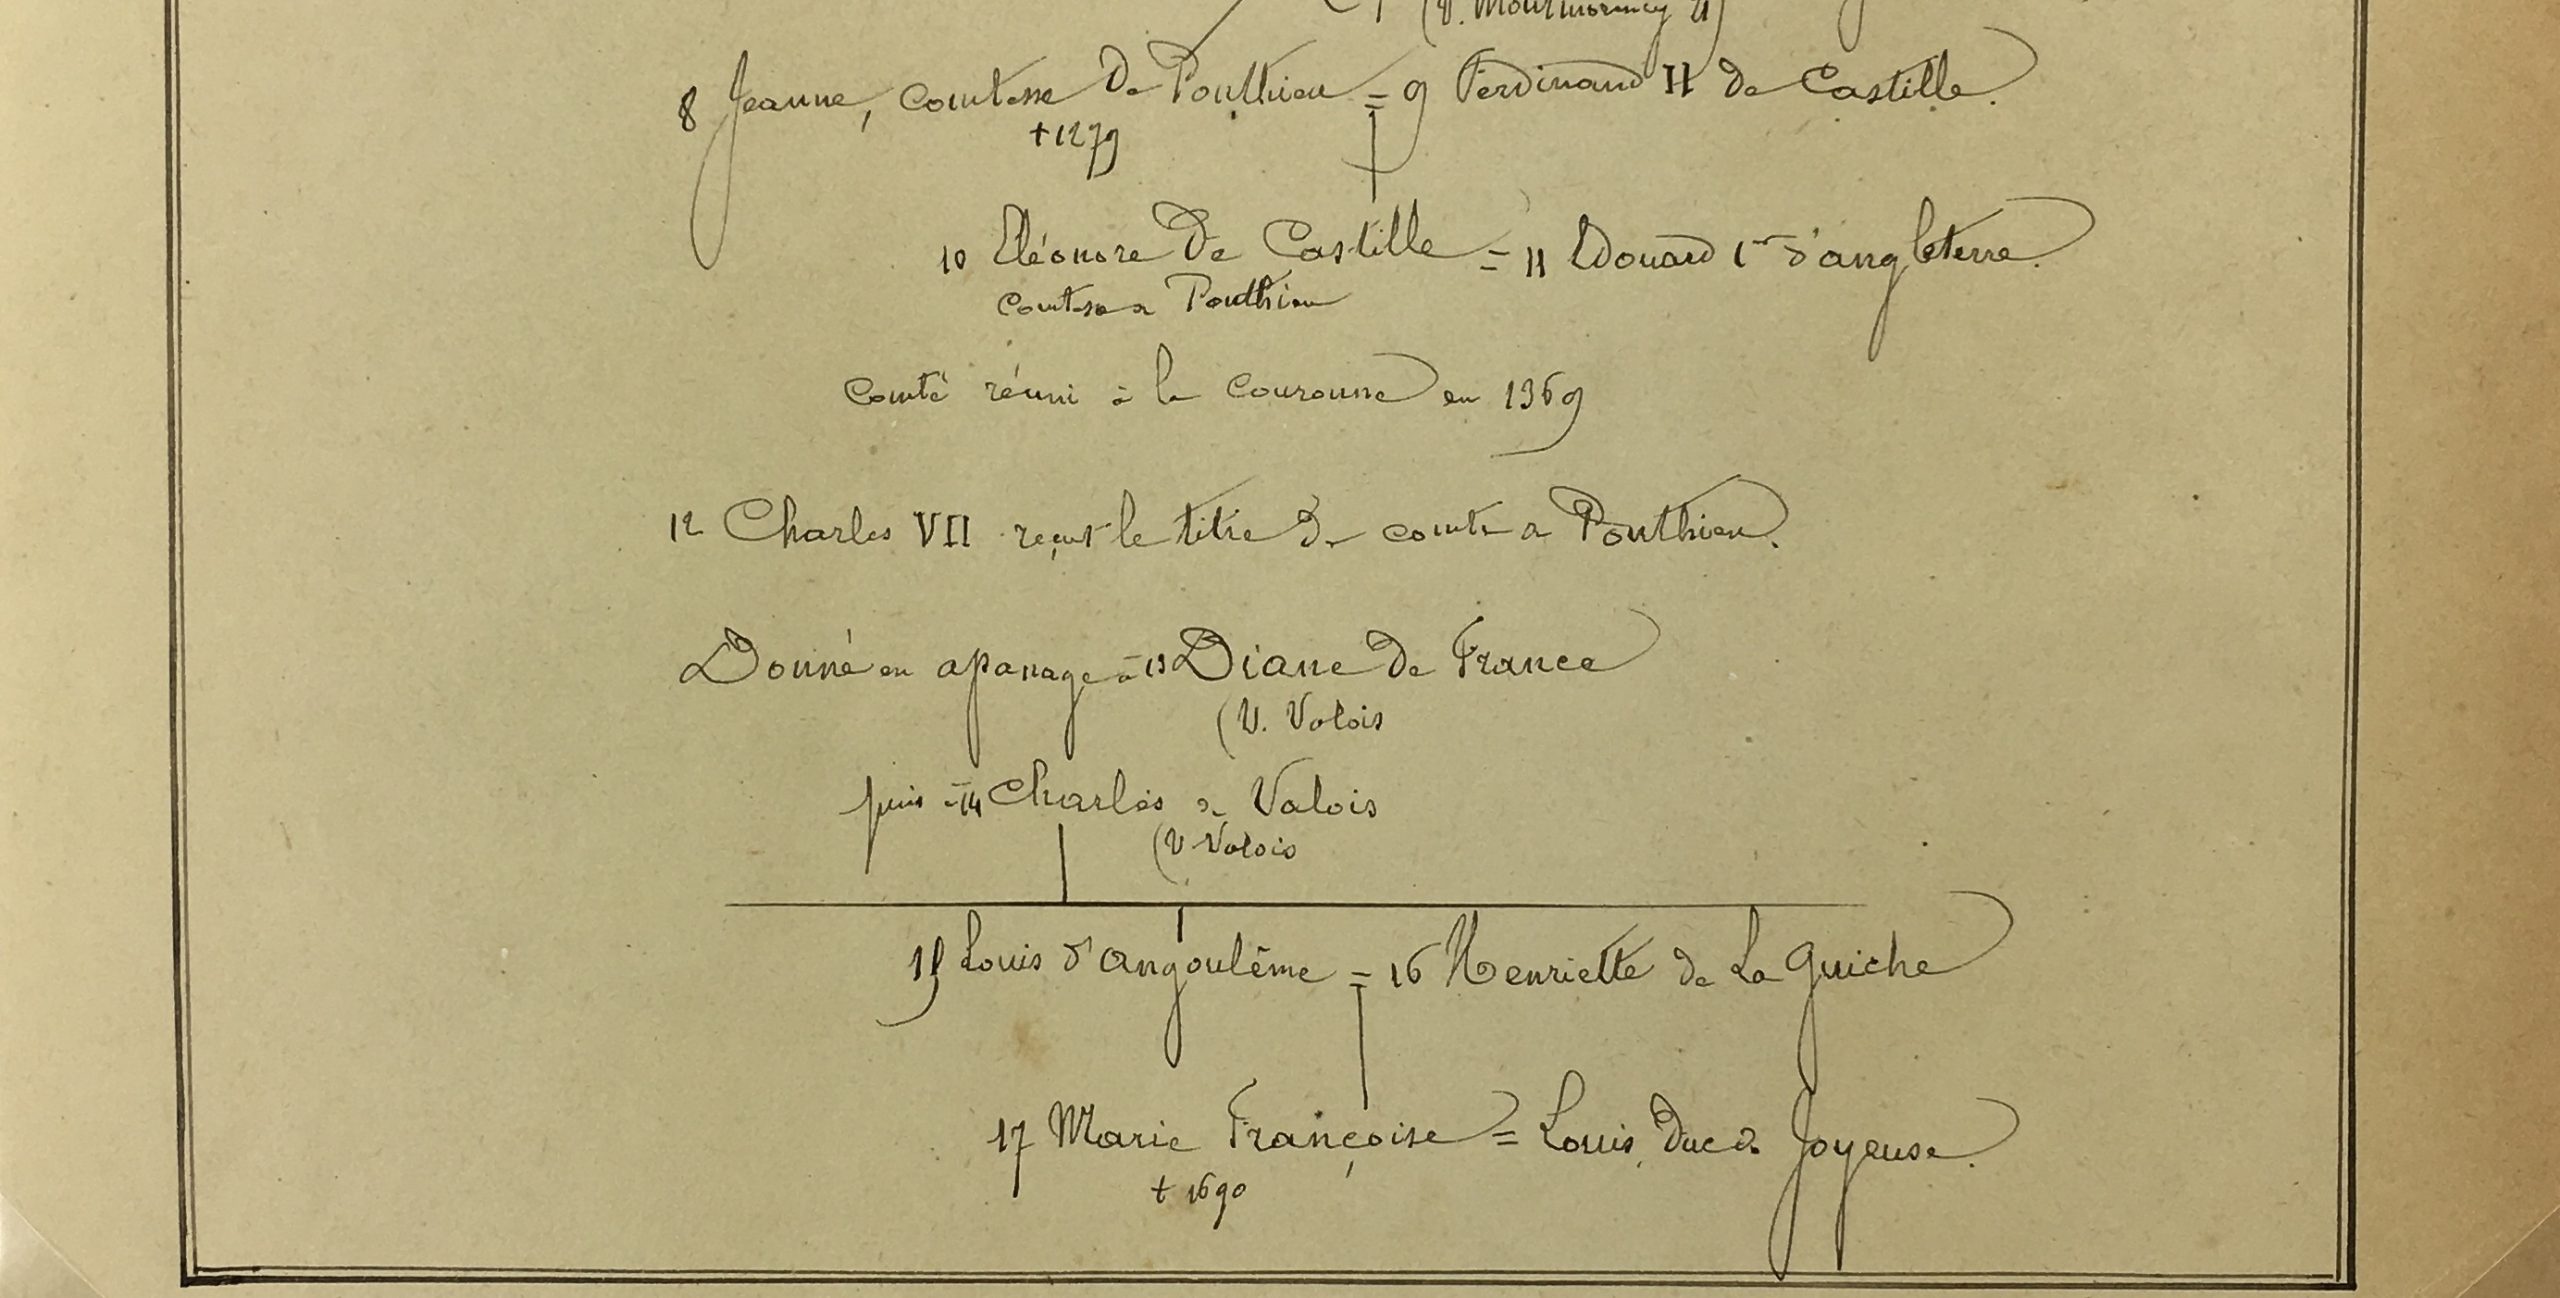 (V. Montmorency 21)
8 Jeanne, comtesse de Ponthieu = 9 Ferdinand II de Castille.
+ 1279
10 Eléonore de Castille = 11 Edouard 1er d'angleterre.
comtesse de Ponthieu
Comté réuni à la couronne en 1369
12 Charles VII reçut le titre de comte de Ponthieu.
Donné en apanage à 13 Diane de France
(V. Valois
puis à 14 Charles de Valois
(V. Valois
15 Louis d'angoulême = 16 Henriette de La Guiche
17 Marie Françoise = Louis, duc de Joyeuse.
+ 1690